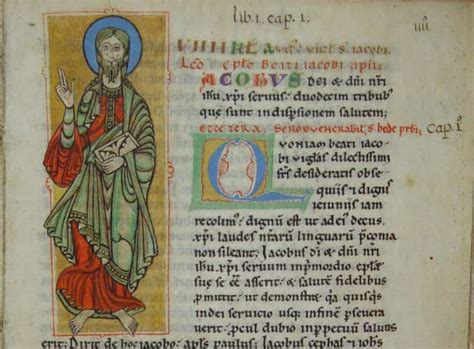 lib. 1. cap. 1. iiij
vigl's iacobi
Leō eplē Beati iacobi apłi
IACOBUS Dei & dn̄i nr̄i
ihu. xp̄i seruus. duodecim tribub;
que sunt in dispsione salutem;
ET CETERA. SERMO VENERABILIS bede prb̄i. Cap. 1
QVONIAM beati iacobi
uiglas dilectissimi
frs desideratis obse
quiis & dignis
ieiuniis iam
recolim'. dignum est ut ad eius decus.
xp̄i laudes nr̄arū linguarū p̄conia
non sileant. Iacobus dī & dn̄i nr̄i
ihu. xp̄i seruum inprimordio eplæ
sue se ee asserit. & salutē fidelibus
promittit. ut demonstret qā quisquis
indei seruicio usq; infinē pseuera
uerit. pcul dubio inppetuum saluus
erit: de hoc iacobo. apls paulus; Iacobus cephas & iohs